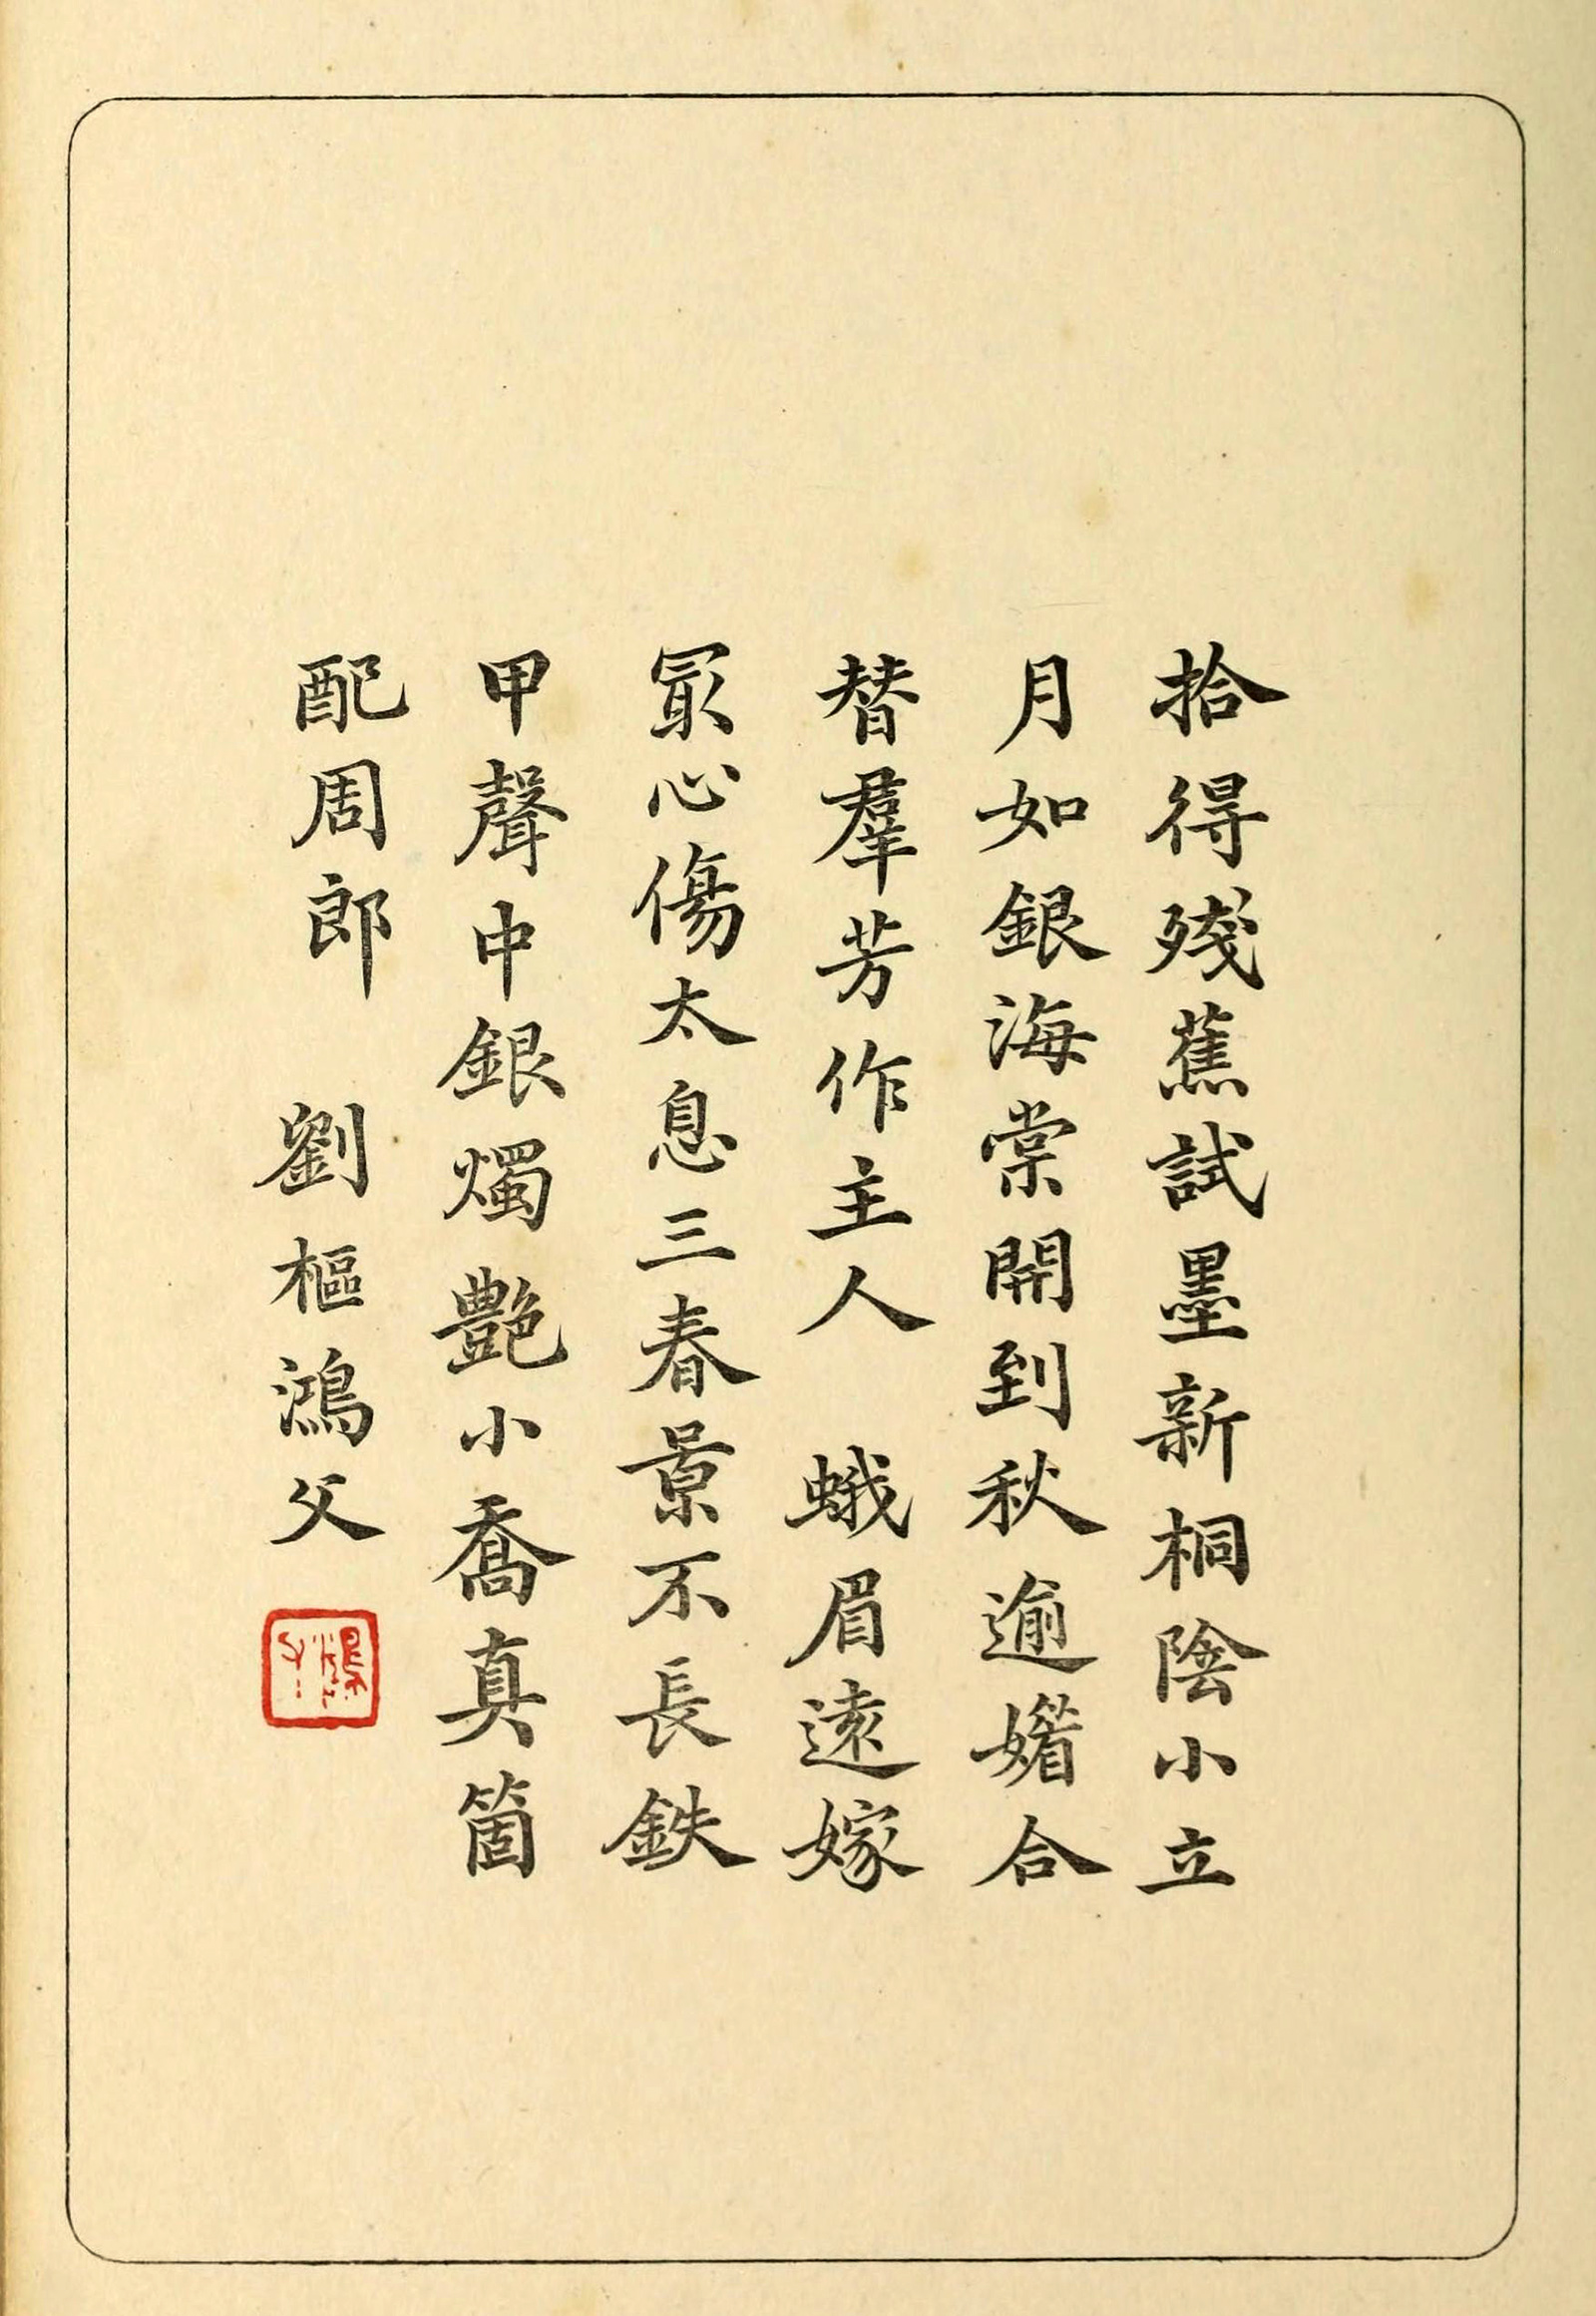 拾得殘蕉試墨新桐陰小立
月如銀海棠開到秋逾媚合
替羣芳作主人　蛾眉遠嫁
冣心傷太息三春景不長鉄
甲聲中銀燭艶小喬真箇
配周郎　劉樞鴻父